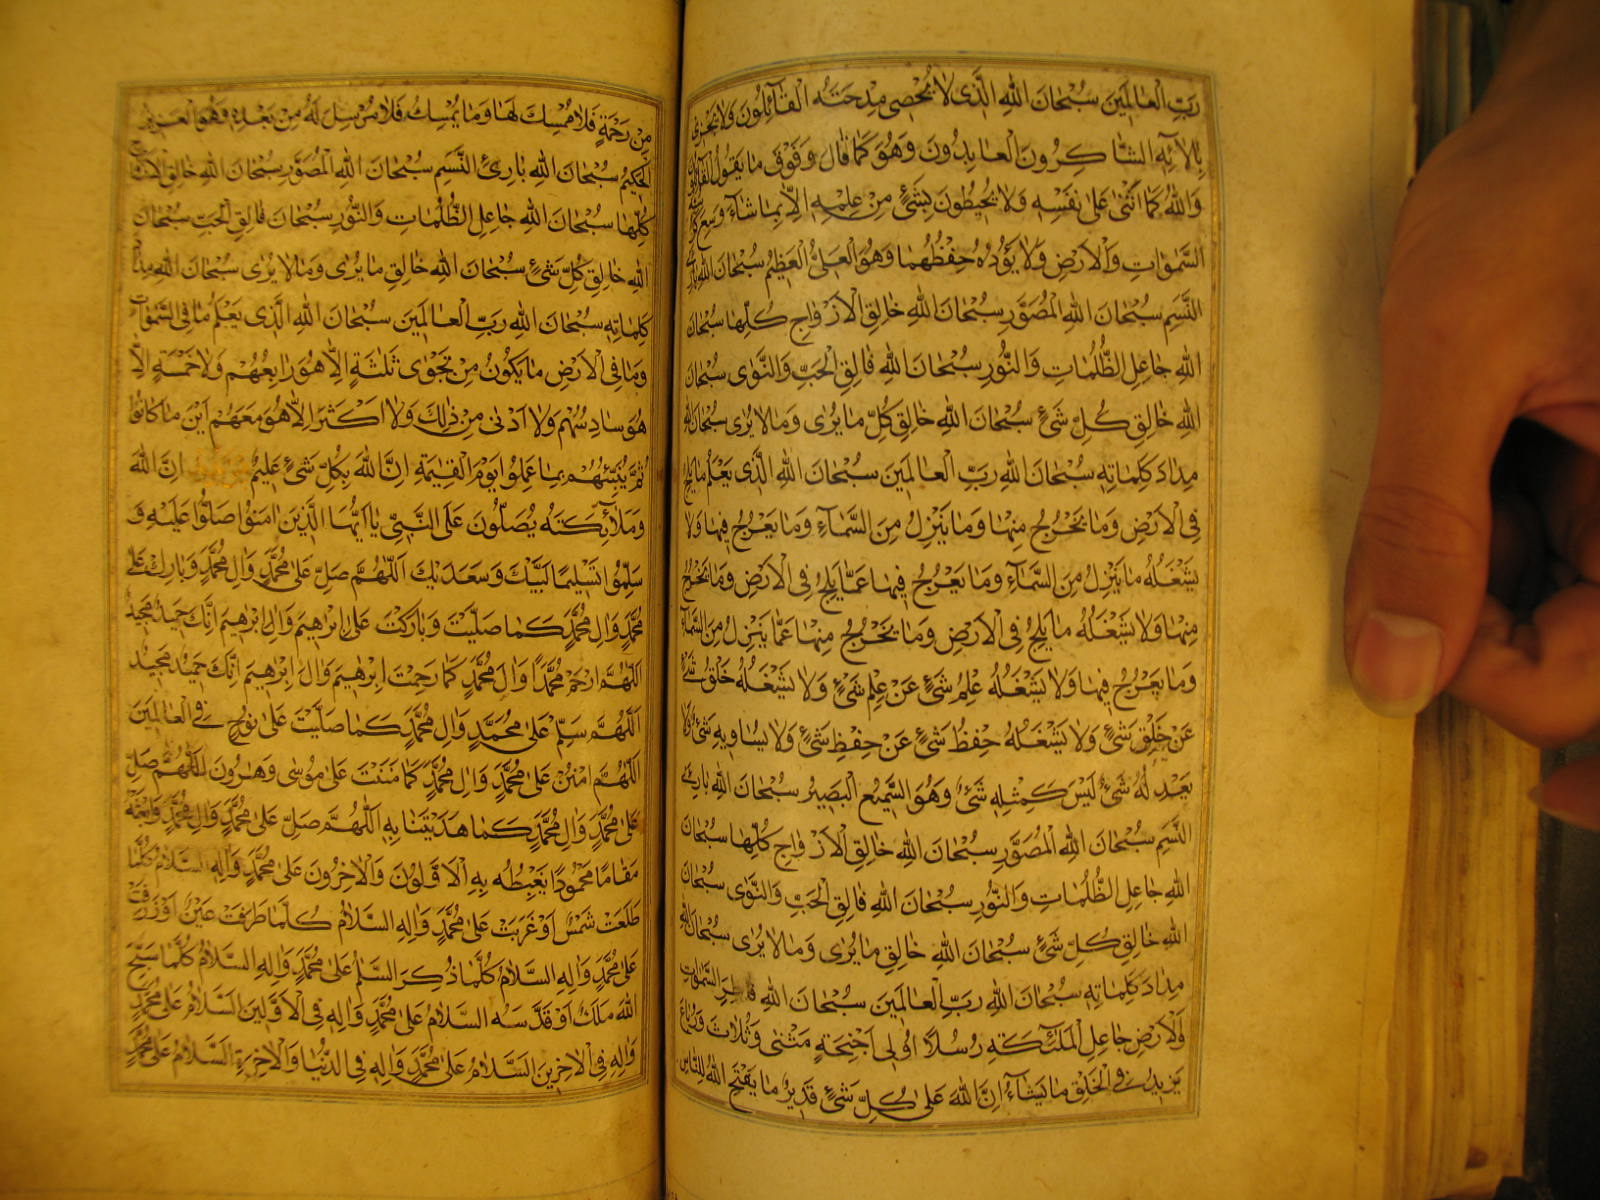 رَبِّ الْعَالَمِينَ سُبْحَانَ اللهِ الَّذِی لَا يُحْصِی مِدْحَتَهُ الْقَآئِلُونَ وَلَا يَجْزِی
بِآلَآئِهِ الشَّاكِرُونَ الْعَابِدُونَ وَهُوَ كَمَا قَالَ وَفَوْقَ مَا يَقُولُ الْقَآئِلُونَ
وَاللهُ كَمَا اَثْنٰی عَلٰی نَفْسِهِ وَلَا يُحِيطُونَ بِشَیْءٍ مِنْ عِلْمِهِ اِلَّا بِمَا شَآءَ وَسِعَ كُرْسِيُّهُ
السَّمٰوَاتِ وَالْاَرْضَ وَلَا يَؤُدُهُ حِفْظُهُمَا وَهُوَ الْعَلِیُّ الْعَظِيمُ سُبْحَانَ اللهِ بَارِئِ
النَّسَمِ سُبْحَانَ اللهِ الْمُصَوِّرِ سُبْحَانَ اللهِ خَالِقِ الْاَزْوَاجِ كُلِّهَا سُبْحَانَ
اللهِ جَاعِلِ الظُّلُمَاتِ وَالنُّورِ سُبْحَانَ اللهِ فَالِقِ الْحَبِّ وَالنَّوٰی سُبْحَانَ
اللهِ خَالِقِ كُلِّ شَیْءٍ سُبْحَانَ اللهِ خَالِقِ كُلِّ مَا يُرٰی وَمَا لَا يُرٰی سُبْحَانَ اللهِ
مِدَادَ كَلِمَاتِهِ سُبْحَانَ اللهِ رَبِّ الْعَالَمِينَ سُبْحَانَ اللهِ الَّذِی يَعْلَمُ مَا يَلِجُ
فِی الْاَرْضِ وَمَا يَخْرُجُ مِنْهَا وَمَا يَنْزِلُ مِنَ السَّمَآءِ وَمَا يَعْرُجُ فِيهَا وَلَا
يَشْغَلُهُ مَا يَنْزِلُ مِنَ السَّمَآءِ وَمَا يَعْرُجُ فِيهَا عَمَّا يَلِجُ فِی الْاَرْضِ وَمَا يَخْرُجُ
مِنْهَا وَلَا يَشْغَلُهُ مَا يَلِجُ فِی الْاَرْضِ وَمَا يَخْرُجُ مِنْهَا عَمَّا يَنْزِلُ مِنَ السَّمَآءِ
وَمَا يَعْرُجُ فِيهَا وَلَا يَشْغَلُهُ عِلْمُ شَیْءٍ عَنْ عِلْمِ شَیْءٍ وَلَا يَشْغَلُهُ خَلْقُ شَیْءٍ
عَنْ خَلْقِ شَیْءٍ وَلَا يَشْغَلُهُ حِفْظُ شَیْءٍ عَنْ حِفْظِ شَیْءٍ وَلَا يُسَاوِيهِ شَیْءٌ وَلَا
يَعْدِلُهُ شَیْءٌ لَيْسَ كَمِثْلِهِ شَیْءٌ وَهُوَ السَّمِيعُ الْبَصِيرُ سُبْحَانَ اللهِ بَارِئِ
النَّسَمِ سُبْحَانَ اللهِ الْمُصَوِّرِ سُبْحَانَ اللهِ خَالِقِ الْاَزْوَاجِ كُلِّهَا سُبْحَانَ
اللهِ جَاعِلِ الظُّلُمَاتِ وَالنُّورِ سُبْحَانَ اللهِ فَالِقِ الْحَبِّ وَالنَّوٰی سُبْحَانَ
اللهِ خَالِقِ كُلِّ شَیْءٍ سُبْحَانَ اللهِ خَالِقِ مَا يُرٰی وَمَا لَا يُرٰی سُبْحَانَ اللهِ
مِدَادَ كَلِمَاتِهِ سُبْحَانَ اللهِ رَبِّ الْعَالَمِينَ سُبْحَانَ اللهِ فَاطِرِ السَّمٰوَاتِ
وَالْاَرْضِ جَاعِلِ الْمَلٰٓئِكَةِ رُسُلًا اُولِی اَجْنِحَةٍ مَثْنٰی وَثُلَاثَ وَرُبَاعَ
يَزِيدُ فِی الْخَلْقِ مَا يَشَآءُ اِنَّ اللهَ عَلٰی كُلِّ شَیْءٍ قَدِيرٌ مَا يَفْتَحِ اللهُ لِلنَّاسِ
مِنْ رَحْمَةٍ فَلَا مُمْسِكَ لَهَا وَمَا يُمْسِكْ فَلَا مُرْسِلَ لَهُ مِنْ بَعْدِهِ وَهُوَ الْعَزِيزُ
الْحَكِيمُ سُبْحَانَ اللهِ بَارِئِ النَّسَمِ سُبْحَانَ اللهِ الْمُصَوِّرِ سُبْحَانَ اللهِ خَالِقِ الْاَزْوَاجِ
كُلِّهَا سُبْحَانَ اللهِ جَاعِلِ الظُّلُمَاتِ وَالنُّورِ سُبْحَانَ فَالِقِ الْحَبِّ سُبْحَانَ
اللهِ خَالِقِ كُلِّ شَیْءٍ سُبْحَانَ اللهِ خَالِقِ مَا يُرٰی وَمَا لَا يُرٰی سُبْحَانَ اللهِ مِدَادَ
كَلِمَاتِهِ سُبْحَانَ اللهِ رَبِّ الْعَالَمِينَ سُبْحَانَ اللهِ الَّذِی يَعْلَمُ مَا فِی السَّمٰوَاتِ
وَمَا فِی الْاَرْضِ مَا يَكُونُ مِنْ نَجْوٰی ثَلٰثَةٍ اِلَّا هُوَ رَابِعُهُمْ وَلَا خَمْسَةٍ اِلَّا
هُوَ سَادِسُهُمْ وَلَا اَدْنٰی مِنْ ذٰلِكَ وَلَا اَكْثَرَ اِلَّا هُوَ مَعَهُمْ اَيْنَ مَا كَانُوا
ثُمَّ يُنَبِّئُهُمْ بِمَا عَمِلُوا يَوْمَ الْقِيٰمَةِ اِنَّ اللهَ بِكُلِّ شَیْءٍ عَلِيمٌ اِنَّ اللهَ
وَمَلَآئِكَتَهُ يُصَلُّونَ عَلَی النَّبِیِّ يَا اَيُّهَا الَّذِينَ اٰمَنُوا صَلُّوا عَلَيْهِ وَ
سَلِّمُوا تَسْلِيمًا لَبَّيْكَ وَسَعْدَيْكَ اَللّٰهُمَّ صَلِّ عَلٰی مُحَمَّدٍ وَآلِ مُحَمَّدٍ وَبَارِكْ عَلٰی
مُحَمَّدٍ وَآلِ مُحَمَّدٍ كَمَا صَلَّيْتَ وَبَارَكْتَ عَلٰی اِبْرٰهِيمَ وَآلِ اِبْرٰهِيمَ اِنَّكَ حَمِيدٌ مَجِيدٌ
اَللّٰهُمَّ ارْحَمْ مُحَمَّدًا وَآلَ مُحَمَّدٍ كَمَا رَحِمْتَ اِبْرٰهِيمَ وَآلَ اِبْرٰهِيمَ اِنَّكَ حَمِيدٌ مَجِيدٌ
اَللّٰهُمَّ سَلِّمْ عَلٰی مُحَمَّدٍ وَآلِ مُحَمَّدٍ كَمَا صَلَّيْتَ عَلٰی نُوحٍ فِی الْعَالَمِينَ
اَللّٰهُمَّ امْنُنْ عَلٰی مُحَمَّدٍ وَآلِ مُحَمَّدٍ كَمَا مَنَنْتَ عَلٰی مُوسٰی وَهٰرُونَ اَللّٰهُمَّ صَلِّ
عَلٰی مُحَمَّدٍ وَآلِ مُحَمَّدٍ كَمَا هَدَيْتَنَا بِهِ اَللّٰهُمَّ صَلِّ عَلٰی مُحَمَّدٍ وَآلِ مُحَمَّدٍ وَابْعَثْهُ
مَقَامًا مَحْمُودًا يَغْبِطُهُ بِهِ الْاَوَّلُونَ وَالْاٰخِرُونَ عَلٰی مُحَمَّدٍ وَآلِهِ السَّلَامُ كُلَّمَا
طَلَعَتْ شَمْسٌ اَوْ غَرَبَتْ عَلٰی مُحَمَّدٍ وَآلِهِ السَّلَامُ كُلَّمَا طَرَفَتْ عَيْنٌ اَوْ ذَرَفَتْ
عَلٰی مُحَمَّدٍ وَآلِهِ السَّلَامُ كُلَّمَا ذُكِرَ السَّلٰمُ عَلٰی مُحَمَّدٍ وَآلِهِ السَّلَامُ كُلَّمَا سَبَّحَ
اللهَ مَلَكٌ اَوْ قَدَّسَهُ السَّلَامُ عَلٰی مُحَمَّدٍ وَآلِهِ فِی الْاَوَّلِينَ السَّلَامُ عَلٰی مُحَمَّدٍ
وَآلِهِ فِی الْاٰخِرِينَ السَّلَامُ عَلٰی مُحَمَّدٍ وَآلِهِ فِی الدُّنْيَا وَالْاٰخِرَةِ السَّلَامُ عَلٰی مُحَمَّدٍ